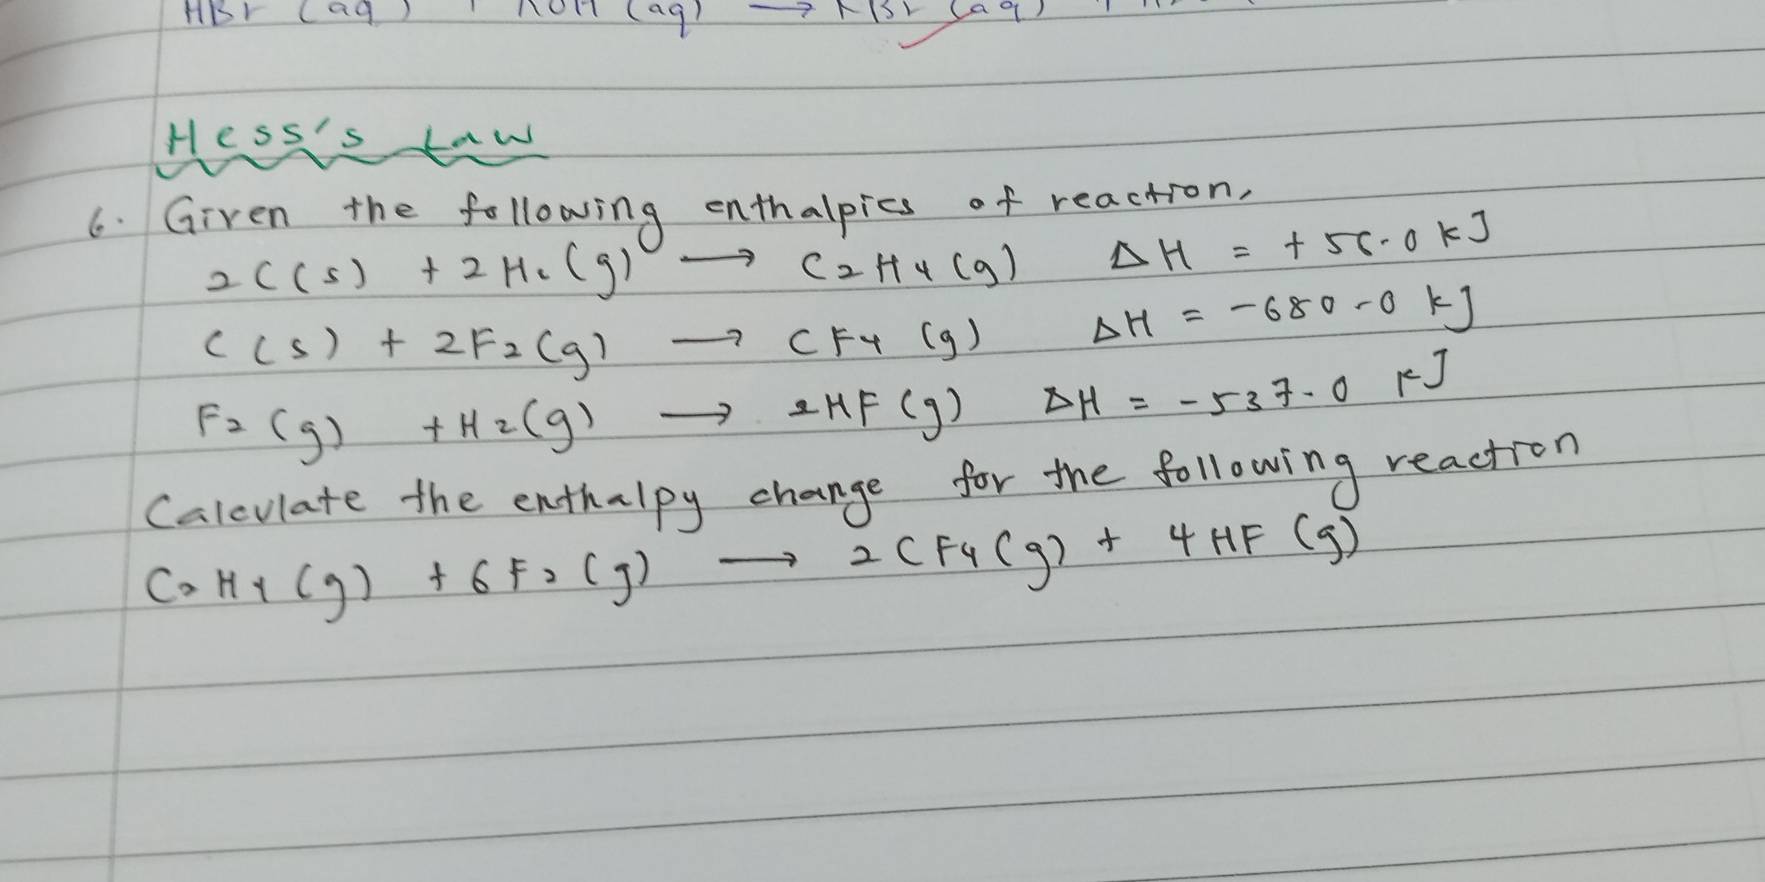 HBr (aq) + KOH (aq) → KBr (aq) +
Hess's Law
6. Given the following enthalpies of reaction,
2C(s) + 2H₂(g) → C2H4(g) ΔH = +56.0 kJ
C(s) + 2F2(g) → CF4 (g) ΔH = -680.0 kJ
F2 (g) + H2(g) → 2HF(g) ΔH = -537.0 kJ
Calculate the enthalpy change for the following reaction
C2H4 (g) + 6F2 (g) → 2CF4(g) + 4HF (g)